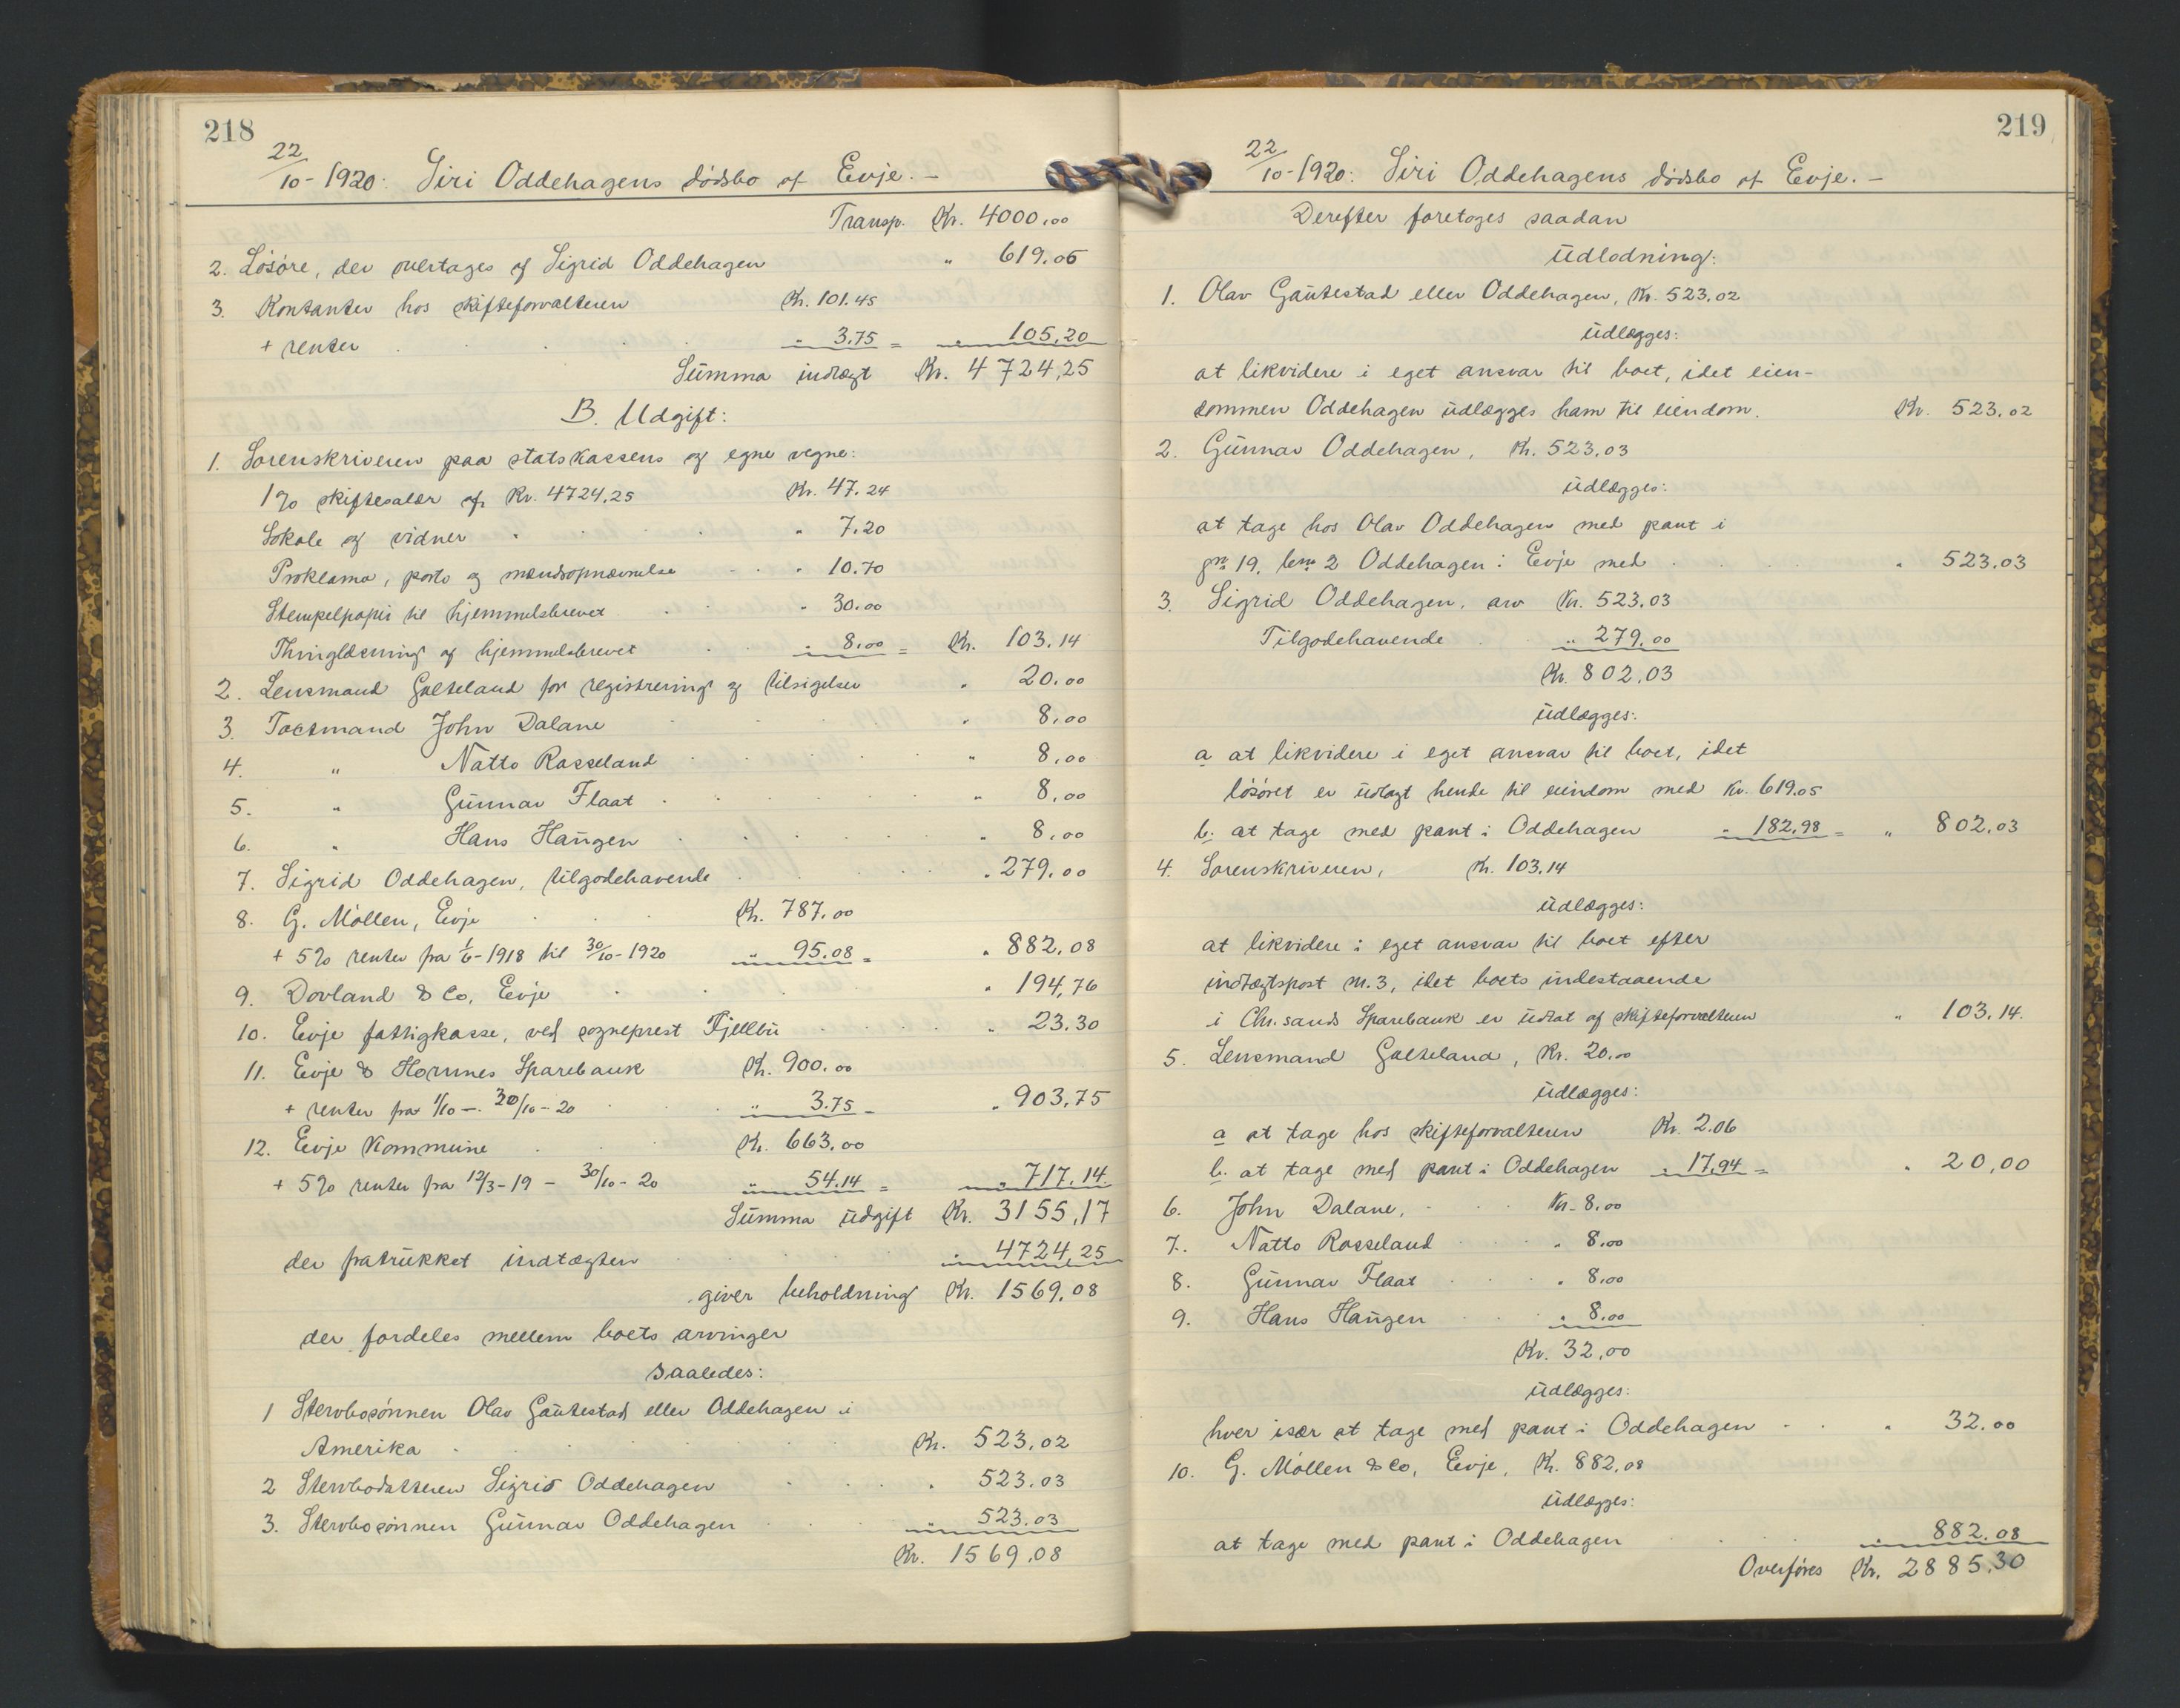 218
22/10-1920: Siri Oddehagens dødsbo af Evje. -
Transp. Kr. 4000,00
2. Løsøre, der overtages af Sigrid Oddehagen " 619.05
3. Kontanter hos skifteforvalteren Kr. 101.45
+ renter " 3.75 = " 105,20
Summa indtægt Kr. 4724,25
B. Udgift:
1. Sorenskriveren paa statskassens og egne vegne:
1% skiftesalær af Kr. 4724,25 Kr. 47.24
Lokale og vidner " 7.20
Proklama, porto og mandsopnævnelse " 10.70
Stempelpapir til hjemmelsbrevet " 30.00
Thinglæsning af hjemmelsbrevet " 8.00 = Kr. 103.14
2. Lensmand Galteland for registrering og tilsigelser " 20.00
3. Tactmand John Dalane " 8,00
4. " Natto Rosseland " 8,00
5. " Gunnar Flaat " 8,00
6. " Hans Haugen " 8,00
7. Sigrid Oddehagen, tilgodehavende " 279.00
8. G. Möllen, Evje Kr. 787.00
+ 5% renter fra 1/6-1918 til 30/10-1920 " 95.08 = " 882,08
9. Dovland & Co, Evje " 194,76
10. Evje fattigkasse, ved sogneprest Fjellbu " 23.30
11. Evje & Hornnes Sparebank Kr. 900.00
+ renter fra 1/10 - 30/10-20 " 3.75 = " 903,75
12. Evje Kommune Kr. 663,00
+ 5% renter fra 12/3-19 - 30/10-20 " 54.14 = " 717.14
Summa udgift Kr. 3155,17
der fratrukket indtægten " 4724,25
giver beholdning Kr. 1569,08
der fordeles mellem boets arvinger
saaledes:
1 Stervbosønnen Olav Gautestad eller Oddehagen i
Amerika Kr. 523,02
2 Stervbodatteren Sigrid Oddehagen " 523.03
3. Stervbosønnen Gunnar Oddehagen " 523.03
Kr. 1569,08
219
22/10-1920: Siri Oddehagens dødsbo af Evje. -
Derefter foretages saadan
Udlodning:
1. Olav Gautestad eller Oddehagen, Kr. 523.02
udlægges:
at likvidere i eget ansvar til boet, idet eien-
dommen Oddehagen udlægges ham til eiendom. Kr. 523.02
2. Gunnar Oddehagen, Kr. 523,03
udlægges:
at tage hos Olav Oddehagen med pant i
gno 19, bno 2 Oddehagen i Evje med " 523.03
3. Sigrid Oddehagen, arv Kr. 523.03
Tilgodehavende " 279.00
Kr. 802,03
udlægges:
a at likvidere i eget ansvar til boet, idet
løsøret er udlagt hende til eiendom med Kr. 619.05
b. at tage med pant i Oddehagen " 182,98 = " 802.03
4. Sorenskriveren, Kr. 103,14
udlægges:
at likvidere i eget ansvar til boet efter
indtægtspost nr. 3, idet boets indestaaende
i Chr.sands Sparebank er udtat af skifteforvalteren " 103.14.
5. Lensmand Galteland, Kr. 20.00
udlægges:
a at tage hos skifteforvalteren Kr. 2.06
b. at tage med pant i Oddehagen " 17,94 = " 20,00
6. John Dalane, Kr. 8.00
7. Natto Rosseland " 8.00
8. Gunnar Flaat " 8,00
9. Hans Haugen " 8.00
Kr. 32,00
udlægges:
hver især at tage med pant i Oddehagen " 32.00
10. G. Möllen & Co, Evje, Kr. 882,08
udlægges:
at tage med pant i Oddehagen " 882.08
Overføres Kr. 2885.30